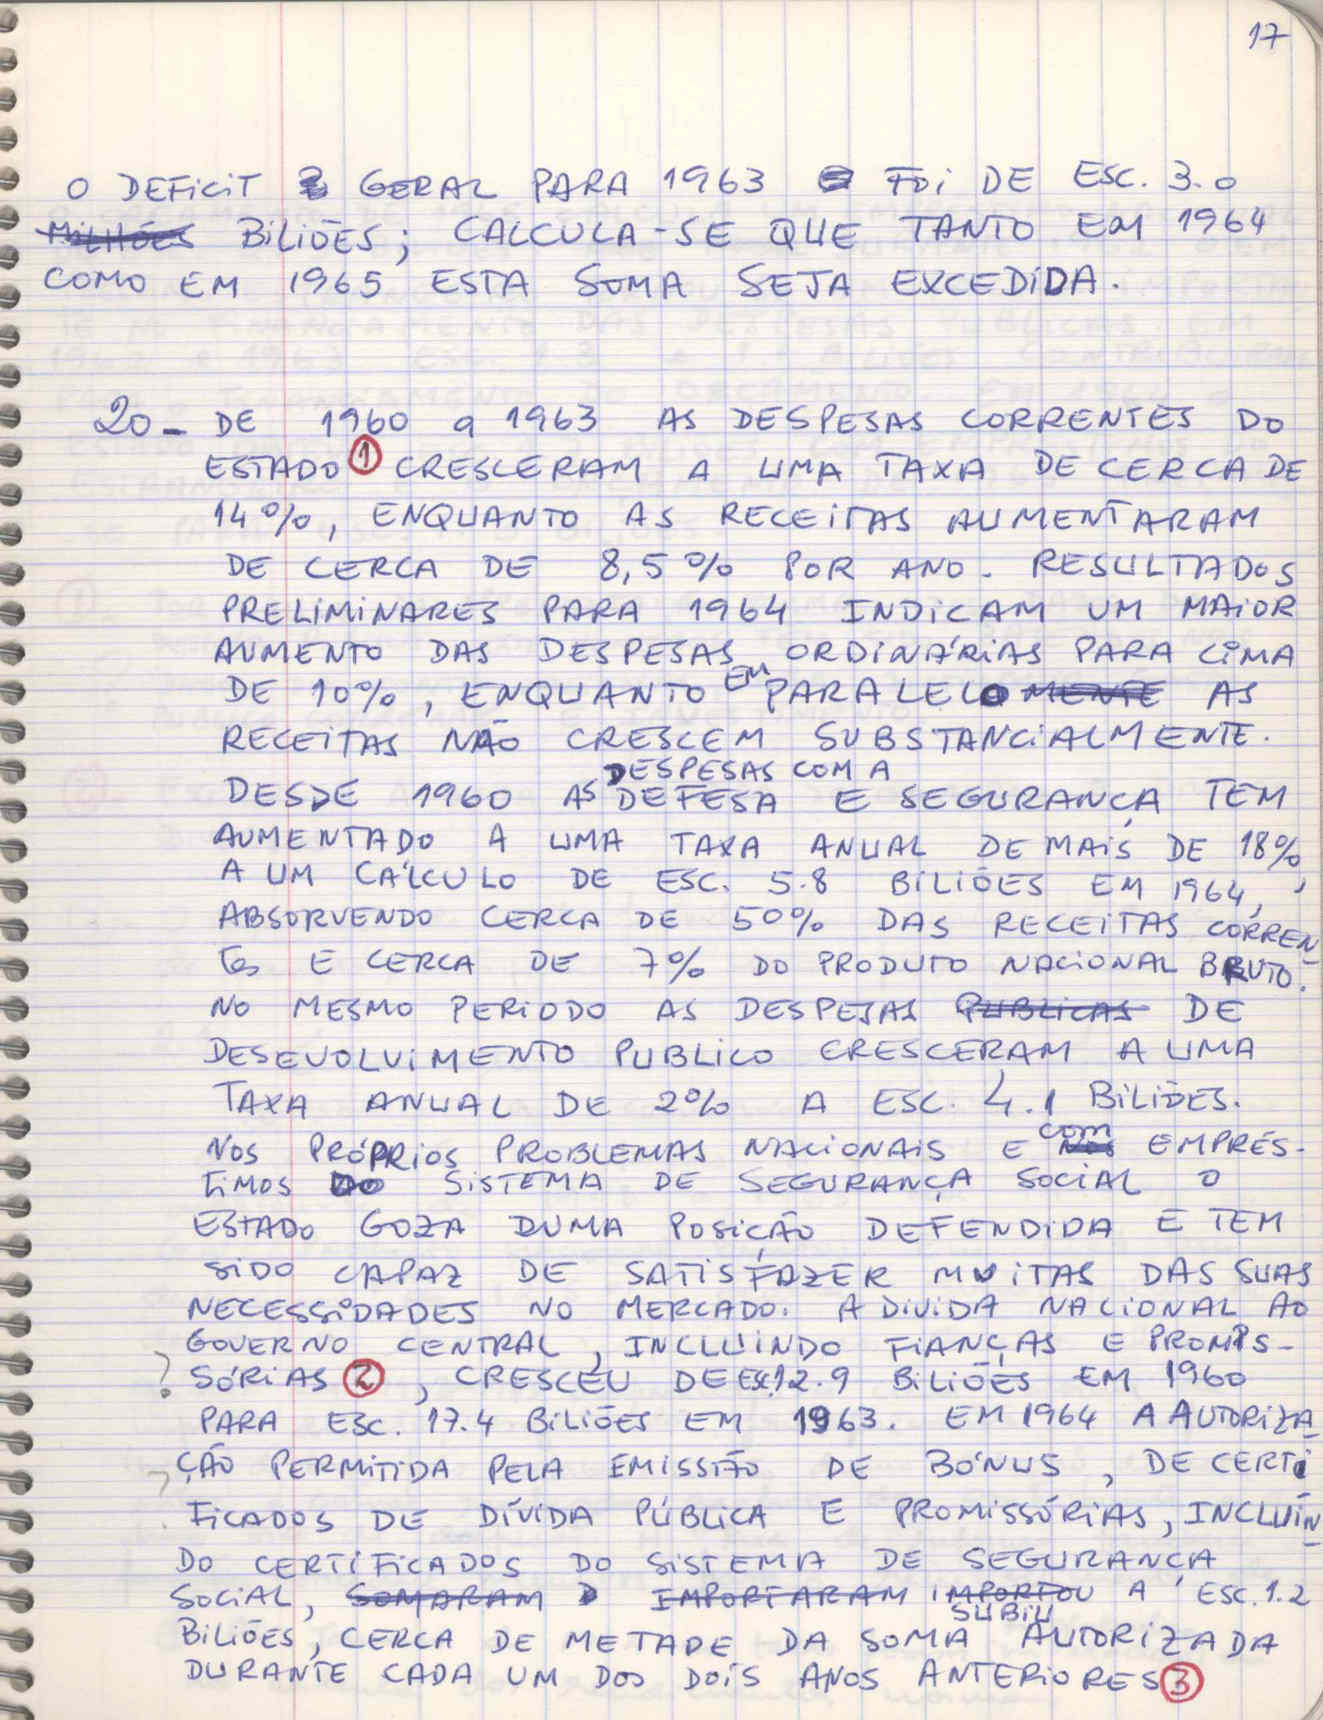 17
O DEFICIT GERAL PARA 1963 FOI DE ESC. 3.0
MILHÕES BILIÕES; CALCULA-SE QUE TANTO EM 1964
COMO EM 1965 ESTA SOMA SEJA EXCEDIDA.
20- DE 1960 a 1963 AS DESPESAS CORRENTES DO
ESTADO ① CRESCERAM A UMA TAXA DE CERCA DE
14%, ENQUANTO AS RECEITAS AUMENTARAM
DE CERCA DE 8,5% POR ANO. RESULTADOS
PRELIMINARES PARA 1964 INDICAM UM MAIOR
AUMENTO DAS DESPESAS ORDINÁRIAS PARA CIMA
DE 10%, ENQUANTO EM PARALELO MENTE AS
RECEITAS NÃO CRESCEM SUBSTANCIALMENTE.
DESPESAS COM A
DESDE 1960 AS DEFESA E SEGURANÇA TEM
AUMENTADO A UMA TAXA ANUAL DE MAIS DE 18%,
A UM CÁLCULO DE ESC. 5.8 BILIÕES EM 1964,
ABSORVENDO CERCA DE 50% DAS RECEITAS CORREN-
TES E CERCA DE 7% DO PRODUTO NACIONAL BRUTO.
NO MESMO PERIODO AS DESPESAS PUBLICAS DE
DESEVOLVIMENTO PUBLICO CRESCERAM A UMA
TAXA ANUAL DE 2% A ESC. 4.1 BILIÕES.
NOS PRÓPRIOS PROBLEMAS NACIONAIS E NOS com EMPRÉS-
TIMOS DO SISTEMA DE SEGURANÇA SOCIAL O
ESTADO GOZA DUMA POSIÇÃO DEFENDIDA E TEM
SIDO CAPAZ DE SATISFAZER MUITAS DAS SUAS
NECESSIDADES NO MERCADO. A DIVIDA NACIONAL AO
GOVERNO CENTRAL, INCLUINDO FIANÇAS E PROMIS-
? SÓRIAS ②, CRESCEU DE ESC. 12.9 BILIÕES EM 1960
PARA ESC. 17.4 BILIÕES EM 1963. EM 1964 A AUTORIZA-
? ÇÃO PERMITIDA PELA EMISSÃO DE BÓNUS, DE CERTI
FICADOS DE DÍVIDA PÚBLICA E PROMISSÓRIAS, INCLUÍN-
DO CERTIFICADOS DO SISTEMA DE SEGURANÇA
SOCIAL, SOMARAM IMPORTARAM IMPORTOU SUBIU A ESC. 1.2
BILIÕES, CERCA DE METADE DA SOMA AUTORIZADA
DURANTE CADA UM DOS DOIS ANOS ANTERIORES ③